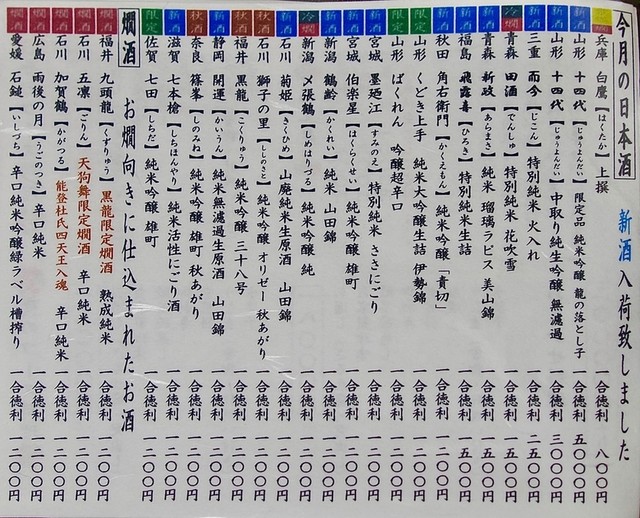 今月の日本酒 新酒入荷致しました
兵庫 白鷹【はくたか】上撰 一合徳利 八〇〇円
新酒 山形 十四代【じゅうよんだい】限定品 純米吟醸 龍の落とし子 一合徳利 五〇〇〇円
新酒 山形 十四代【じゅうよんだい】中取り純生吟醸 無濾過 一合徳利 三〇〇〇円
新酒 三重 而今【じこん】特別純米 火入れ 一合徳利 二五〇〇円
冷燗 青森 田酒【でんしゅ】特別純米 花吹雪 一合徳利 一五〇〇円
新酒 青森 新政【あらまさ】純米 瑠璃ラピス 美山錦 一合徳利 一五〇〇円
新酒 福島 飛露喜【ひろき】特別純米生詰 一合徳利 一五〇〇円
新酒 秋田 角右衛門【かくえもん】純米吟醸「責切」 一合徳利 一二〇〇円
限定 山形 くどき上手 純米大吟醸生詰 伊勢錦 一合徳利 一二〇〇円
限定 山形 ばくれん 吟醸超辛口 一合徳利 一二〇〇円
新酒 宮城 墨廼江【すみのえ】特別純米 ささにごり 一合徳利 一二〇〇円
新酒 宮城 伯楽星【はくらくせい】純米吟醸 雄町 一合徳利 一二〇〇円
新酒 新潟 鶴齢【かくれい】純米 山田錦 一合徳利 一二〇〇円
冷燗 新潟 〆張鶴【しめはりづる】純米吟醸 純 一合徳利 一二〇〇円
新酒 石川 菊姫【きくひめ】山廃純米生原酒 山田錦 一合徳利 一二〇〇円
秋酒 石川 獅子の里【ししのさと】純米吟醸 オリゼー 秋あがり 一合徳利 一二〇〇円
秋酒 福井 黒龍【こくりゅう】純米吟醸 三十八号 一合徳利 一二〇〇円
新酒 静岡 開運【かいうん】純米無濾過生原酒 山田錦 一合徳利 一二〇〇円
秋酒 奈良 篠峯【しのみね】純米吟醸 雄町 秋あがり 一合徳利 一二〇〇円
新酒 滋賀 七本槍【しちほんやり】純米活性にごり酒 一合徳利 一二〇〇円
限定 佐賀 七田【しちだ】純米吟醸 雄町 一合徳利 一二〇〇円
燗酒 お燗向きに仕込まれたお酒
燗酒 福井 九頭龍【くずりゅう】黒龍限定燗酒 熟成純米 一合徳利 一二〇〇円
燗酒 石川 五凛【ごりん】天狗舞限定燗酒 辛口純米 一合徳利 一二〇〇円
燗酒 石川 加賀鶴【かがつる】能登杜氏四天王入魂 辛口純米 一合徳利 一二〇〇円
燗酒 広島 雨後の月【うごのつき】辛口純米 一合徳利 一二〇〇円
燗酒 愛媛 石鎚【いしづち】辛口純米吟醸緑ラベル槽搾り 一合徳利 一二〇〇円